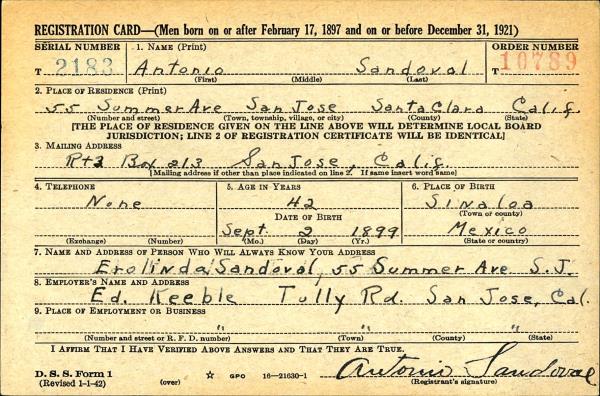 REGISTRATION CARD—(Men born on or after February 17, 1897 and on or before December 31, 1921)
SERIAL NUMBER 1. NAME (Print) ORDER NUMBER
T 2183 Antonio Sandoval T 10789
(First) (Middle) (Last)
2. PLACE OF RESIDENCE (Print)
55 Summer Ave San Jose Santa Clara Calif.
(Number and street) (Town, township, village, or city) (County) (State)
[THE PLACE OF RESIDENCE GIVEN ON THE LINE ABOVE WILL DETERMINE LOCAL BOARD
JURISDICTION; LINE 2 OF REGISTRATION CERTIFICATE WILL BE IDENTICAL]
3. MAILING ADDRESS
Rt 2 Box 213 San Jose, Calif.
[Mailing address if other than place indicated on line 2. If same insert word same]
4. TELEPHONE 5. AGE IN YEARS 6. PLACE OF BIRTH
None 42 Sinaloa
DATE OF BIRTH (Town or county)
Sept. 2 1899 Mexico
(Exchange) (Number) (Mo.) (Day) (Yr.) (State or country)
7. NAME AND ADDRESS OF PERSON WHO WILL ALWAYS KNOW YOUR ADDRESS
Erolinda Sandoval, 55 Summer Ave S.J.
8. EMPLOYER'S NAME AND ADDRESS
Ed. Keeble Tully Rd. San Jose, Cal.
9. PLACE OF EMPLOYMENT OR BUSINESS
" " "
(Number and street or R. F. D. number) (Town) (County) (State)
I AFFIRM THAT I HAVE VERIFIED ABOVE ANSWERS AND THAT THEY ARE TRUE.
D. S. S. Form 1 Antonio Sandoval
(Revised 1-1-42) (over) ☆ GPO 16—21630-1 (Registrant's signature)